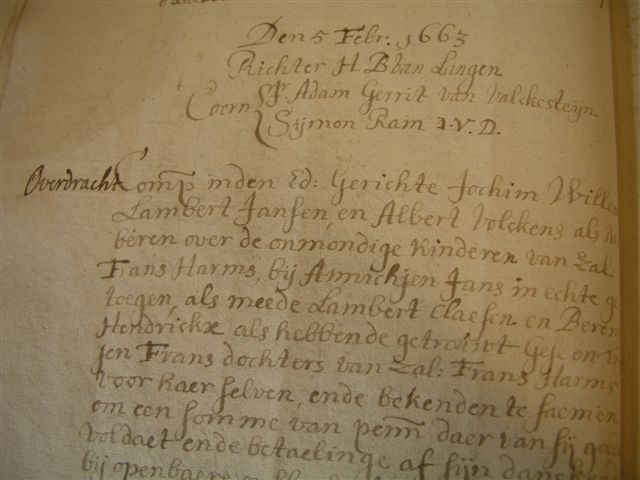 Den 5 Febr. 1663
Richter H B van Langen
Coern Jr Adam Gerrit van Valckesteijn
Sijmon Ram I.V.D.
Overdracht Comp inden Ed: Gerichte Jochim Will
Lambert Jansen, en Albert Volckens als
beren over de onmondige Kinderen van Zal.
Frans Harms, bij Annichjen Jans in echte ge
toegen, als meede Lambert Claesen en Beren
Hendrickx als hebbende getrouwt Gese on
jen Frans dochters van Zal: Frans Harms
voor haer selven, ende bekenden te saemen
om een somme van penn daer van sij goed
voldaet ende betaelinge af sijn danck
bij openbaere